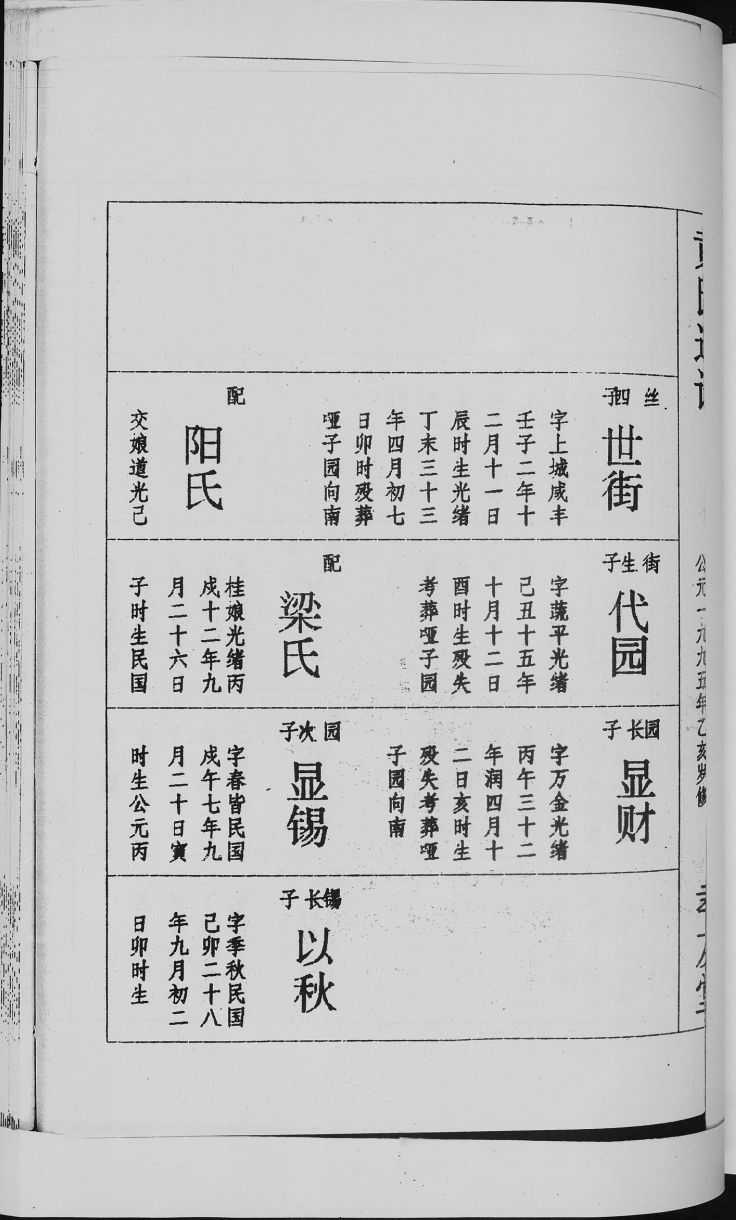 公元一九九五年乙亥岁修
丝
四子
世街
字上城咸丰
壬子二年十
二月十一日
辰时生光绪
丁末三十三
年四月初七
日卯时殁葬
哑子园向南
配
阳氏
交娘道光己
街
生子
代园
字蔬平光绪
己丑十五年
十月十二日
酉时生殁失
考葬哑子园
配
梁氏
桂娘光绪丙
戍十二年九
月二十六日
子时生民国
园
长子
显财
字万金光绪
丙午三十二
年润四月十
二日亥时生
殁失考葬哑
子园向南
园
次子
显锡
字春皆民国
戍午七年九
月二十日寅
时生公元丙
锡
长子
以秋
字季秋民国
己卯二十八
年九月初二
日卯时生